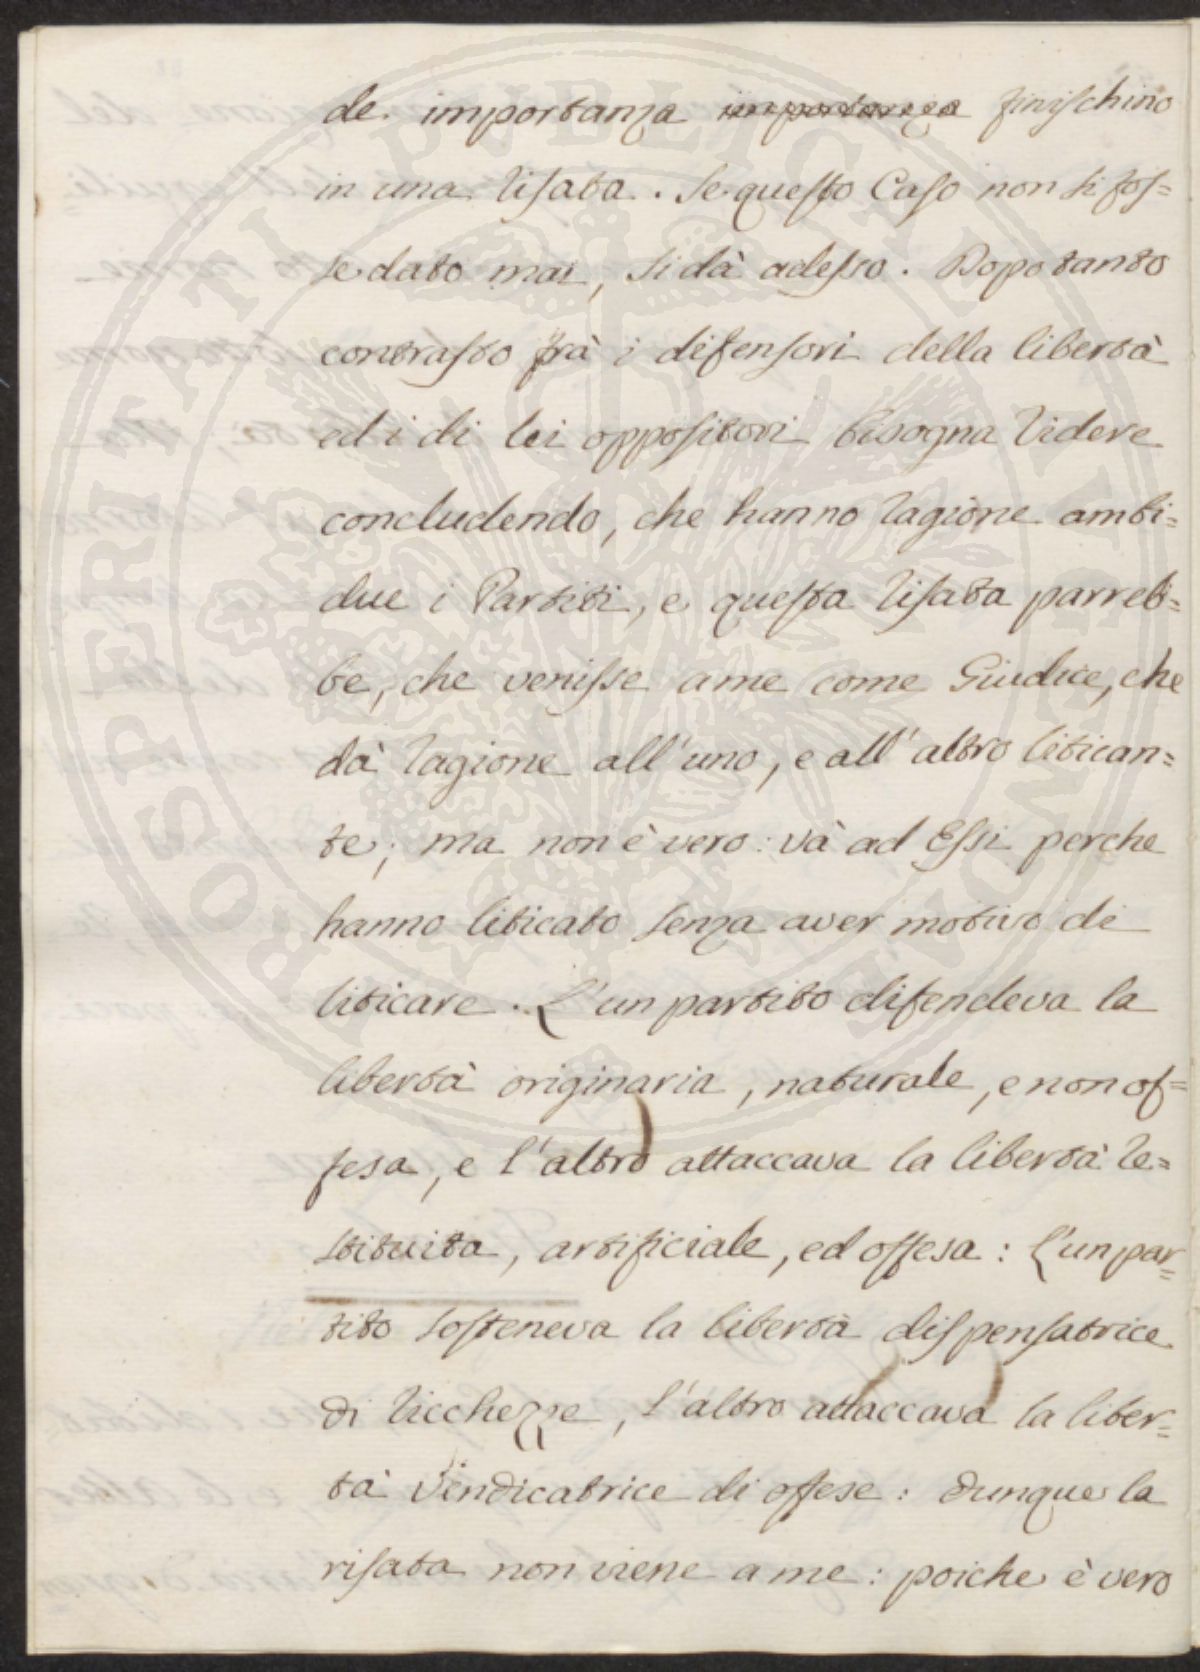 de importanza importanza finischino
in una risata. Se questo Caso non si fos=
se dato mai, si dà adesso. Dopo tanto
contrasto frà i difensori della libertà
ed i di lei oppositori bisogna ridere
concludendo, che hanno ragione ambi=
due i Partiti, e questa risata parreb=
be, che venisse a me come Giudice, che
dà ragione all'uno, e all'altro litican=
te; ma non è vero: và ad Essi perche
hanno liticato senza aver motivo di
liticare. L'un partito difendeva la
libertà originaria, naturale, e non of=
fesa, e l'altro attaccava la libertà re=
stituita, artificiale, ed offesa: L'un par=
tito sosteneva la libertà dispensatrice
di ricchezze, l'altro attaccava la liber=
tà vindicatrice di offese: dunque la
risata non viene a me: poiche è vero
PROSPERITATI PVBLICAE AVGENDAE